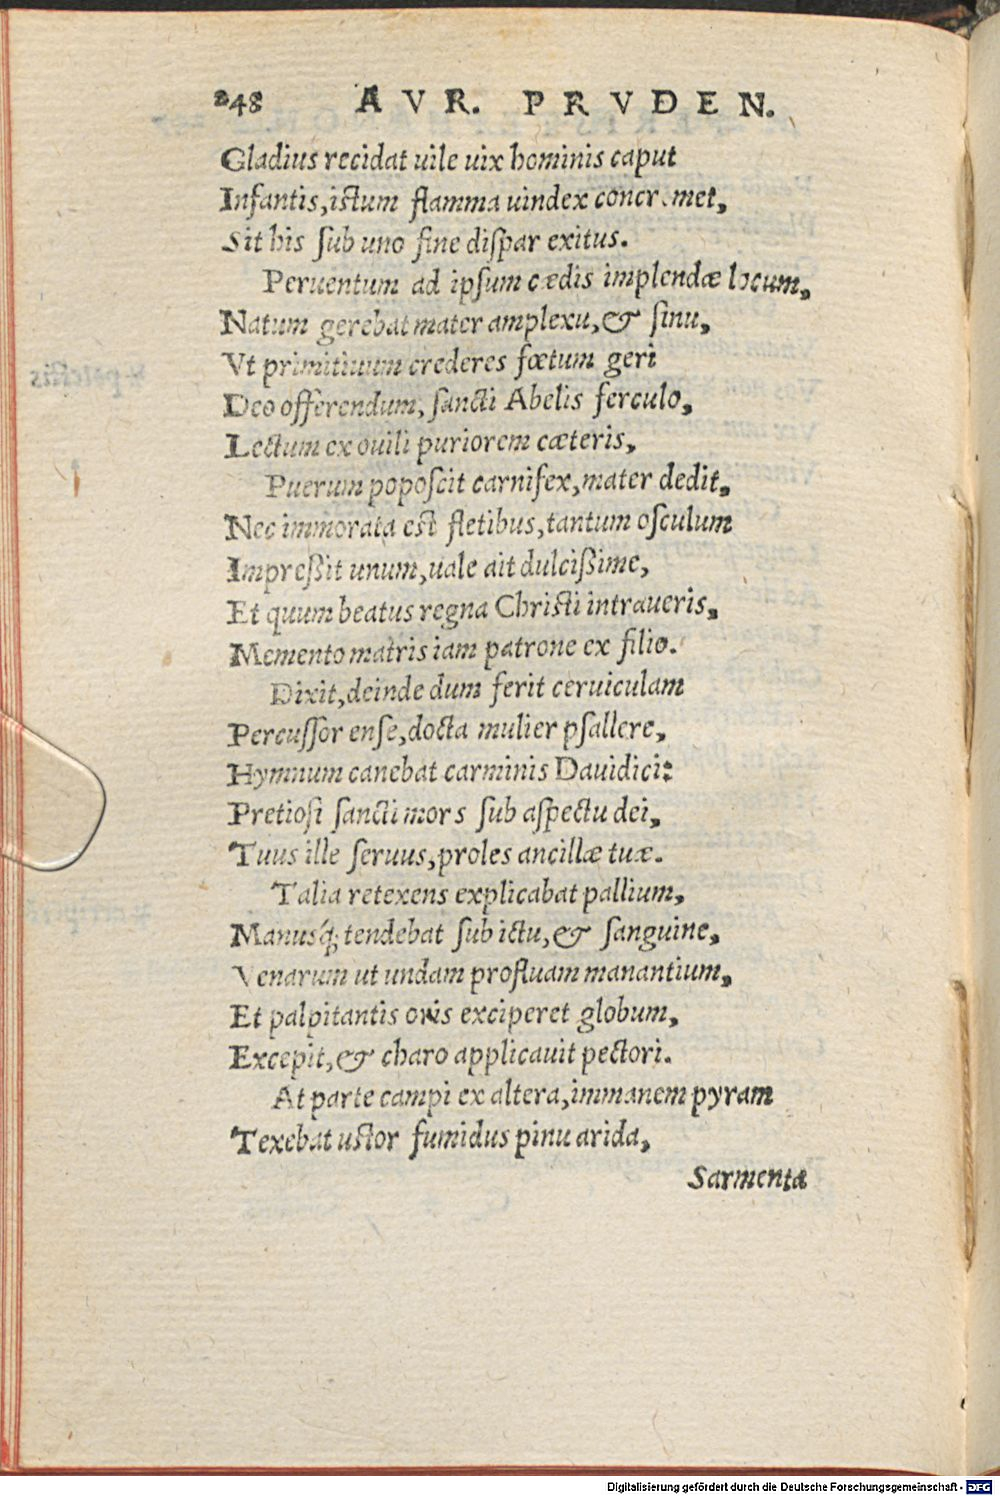 248 AVR. PRVDEN.
Gladius recidat uile uix hominis caput
Infantis, istum flamma uindex concremet,
Sit his sub uno fine dispar exitus.
Peruentum ad ipsum cædis implendæ locum,
Natum gerebat mater amplexu, & sinu,
Vt primitiuum crederes fœtum geri
Deo offerendum, sancti Abelis ferculo,
Lectum ex ouili puriorem cæteris,
Puerum poposcit carnifex, mater dedit,
Nec immorata est fletibus, tantum osculum
Impreßit unum, uale ait dulcißime,
Et quum beatus regna Christi intraueris,
Memento matris iam patrone ex filio.
Dixit, deinde dum ferit ceruiculam
Percussor ense, docta mulier psallere,
Hymnum canebat carminis Dauidici:
Pretiosi sancti mors sub aspectu dei,
Tuus ille seruus, proles ancillæ tuæ.
Talia retexens explicabat pallium,
Manusq́; tendebat sub ictu, & sanguine,
Venarum ut undam profluam manantium,
Et palpitantis oris exciperet globum,
Excepit, & charo applicauit pectori.
At parte campi ex altera, immanem pyram
Texebat ustor fumidus pinu arida,
Sarmenta
Digitalisierung gefördert durch die Deutsche Forschungsgemeinschaft - DFG